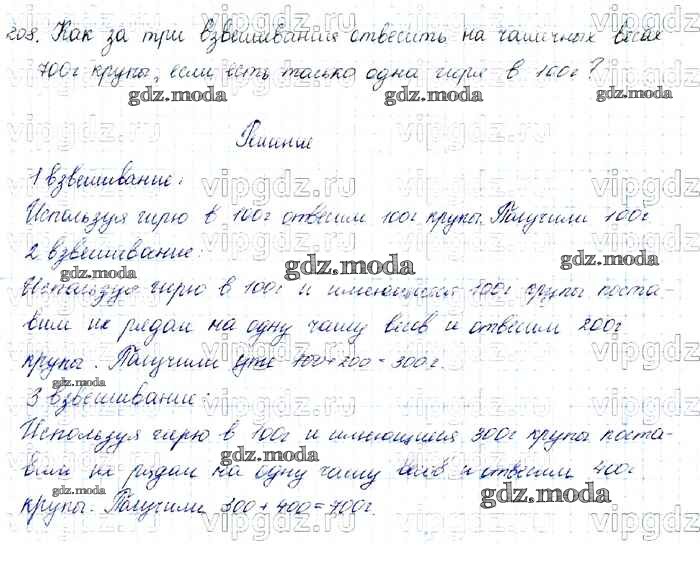 208. Как за три взвешивания отвесить на чашечных весах
700г крупы, если есть только одна гиря в 100г?
Решение
1 взвешивание:
Используя гирю в 100г отвесим 100г крупы. Получили 100г
2 взвешивание:
Используя гирю в 100г и имеющиеся 100г крупы поста-
вим их рядом на одну чашу весов и отвесим 200г
крупы. Получили уже 100+200=300г.
3 взвешивание:
Используя гирю в 100г и имеющиеся 300г крупы поста-
вим их рядом на одну чашу весов и отвесим 400г
крупы. Получили 300+400=700г